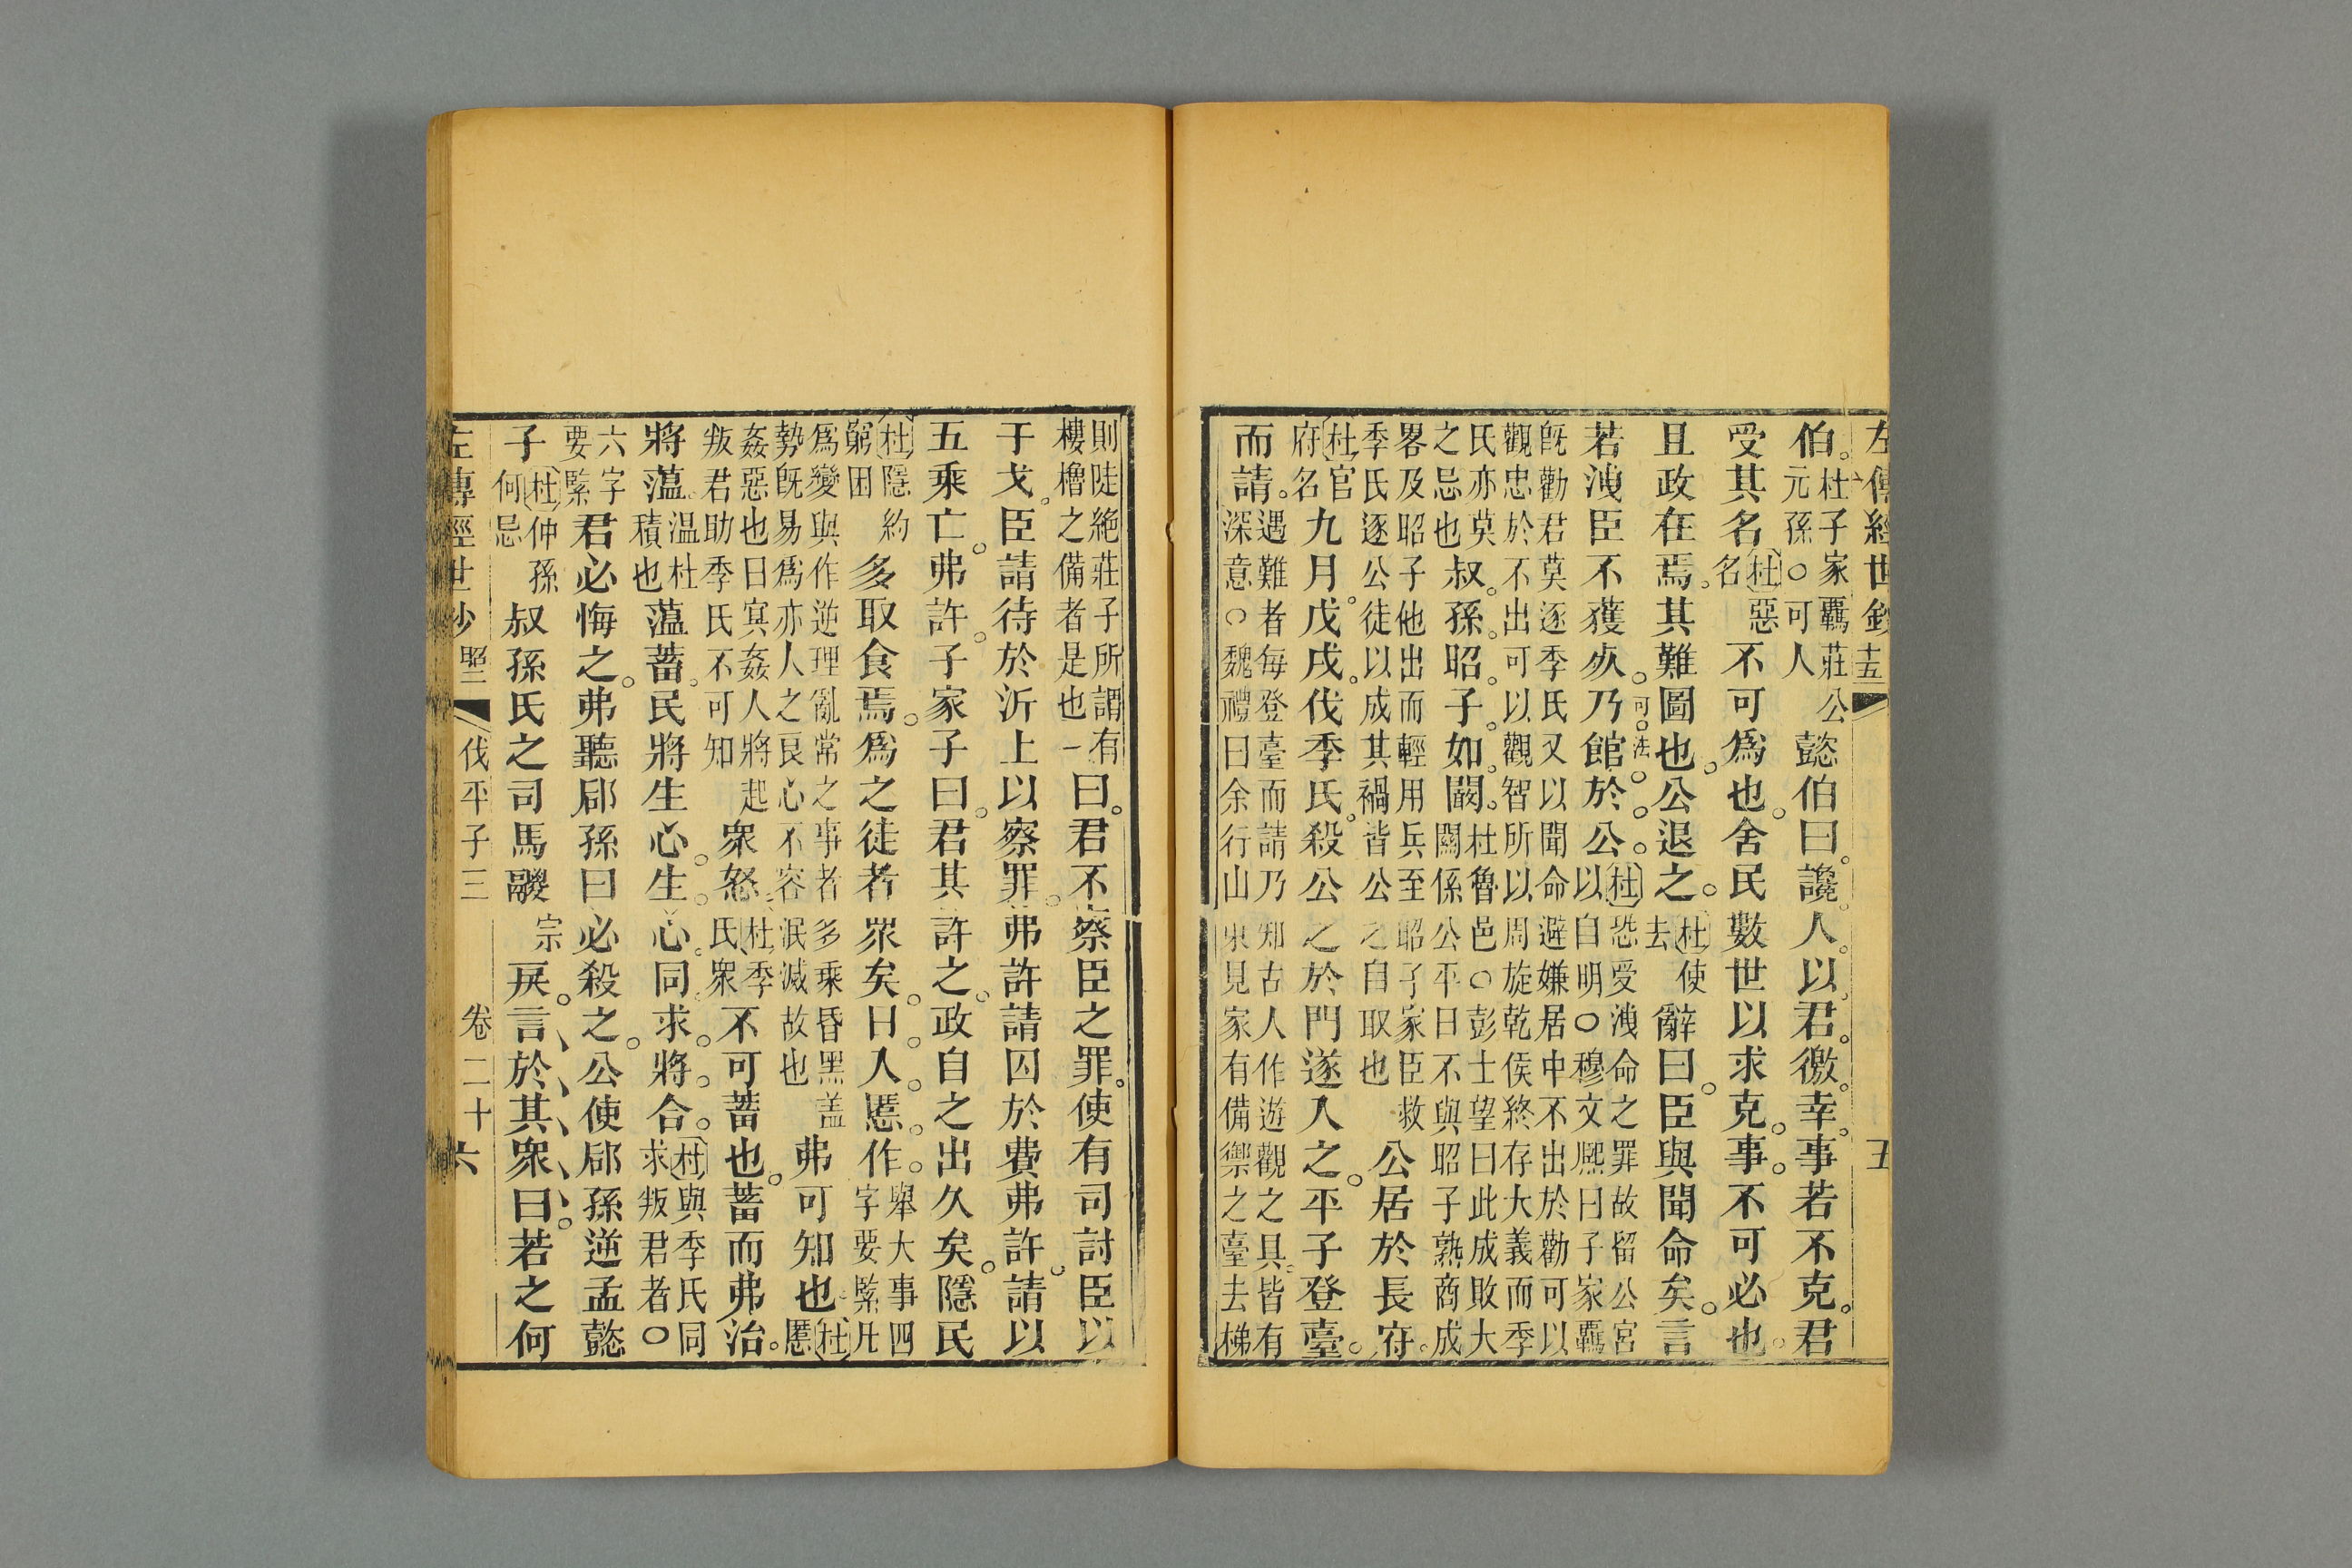 左傳經世鈔 十五 五
伯。杜子家羈莊公元孫○可人懿伯曰。讒人以君徼幸。事若不克。君
受其名杜惡名不可爲也。舍民數世以求克事。不可必也。
且政在焉。其難圖也。公退之。杜使去辭曰。臣與聞命矣。言
若洩臣不獲死。乃館於公。杜恐受洩命之罪故留公宮以自明○穆文熙曰子家羈
可。法
既勸君莫逐季氏又以聞命避嫌居中不出於勸可以觀忠於不出可以觀智所以周旋乾侯終存大義而季
氏亦莫之忌也叔孫昭子如闞。杜魯邑○彭士望曰此成敗大關係公平日不與昭子熟商成
畧及昭子他出而輕用兵至昭子家臣救季氏逐公徒以成其禍皆公之自取也公居於長府。
杜官府名九月。戊戌。伐季氏。殺公之於門遂入之。平子登臺。
而請。遇難者每登臺而請乃知古人作遊觀之具。皆有深意○魏禮曰余行山東見家有備禦之臺去梯
則陡絕莊子所謂有樓櫓之備者是也一曰。君不察臣之罪。使有司討臣以
干戈。臣請待於沂上以察罪。弗許請囚於費弗許。請以
五乘亡。弗許。子家子曰。君其許之。政自之出久矣。隱民
杜隱約窮困多取食焉。爲之徒者眾矣。日入慝作。舉大事四字要緊凡
爲變與作逆理亂常之事者多乘昏黑蓋勢既易爲亦人之良心不容泯滅故也弗可知也杜慝
姦惡也日冥姦人將起叛君助季氏不可知眾怒杜季氏眾不可蓄也。蓄而弗治。
將薀。温杜積也薀蓄。民將生心。生心。同求。將合。杜與季氏同求叛君者○
六字要緊君必悔之。弗聽郈孫曰必殺之。公使郈孫逆孟懿
子杜仲孫何忌叔孫氏之司馬鬷宗戾。言於其眾曰。若之何
左傳經世鈔 昭二 伐平子三 卷二十六